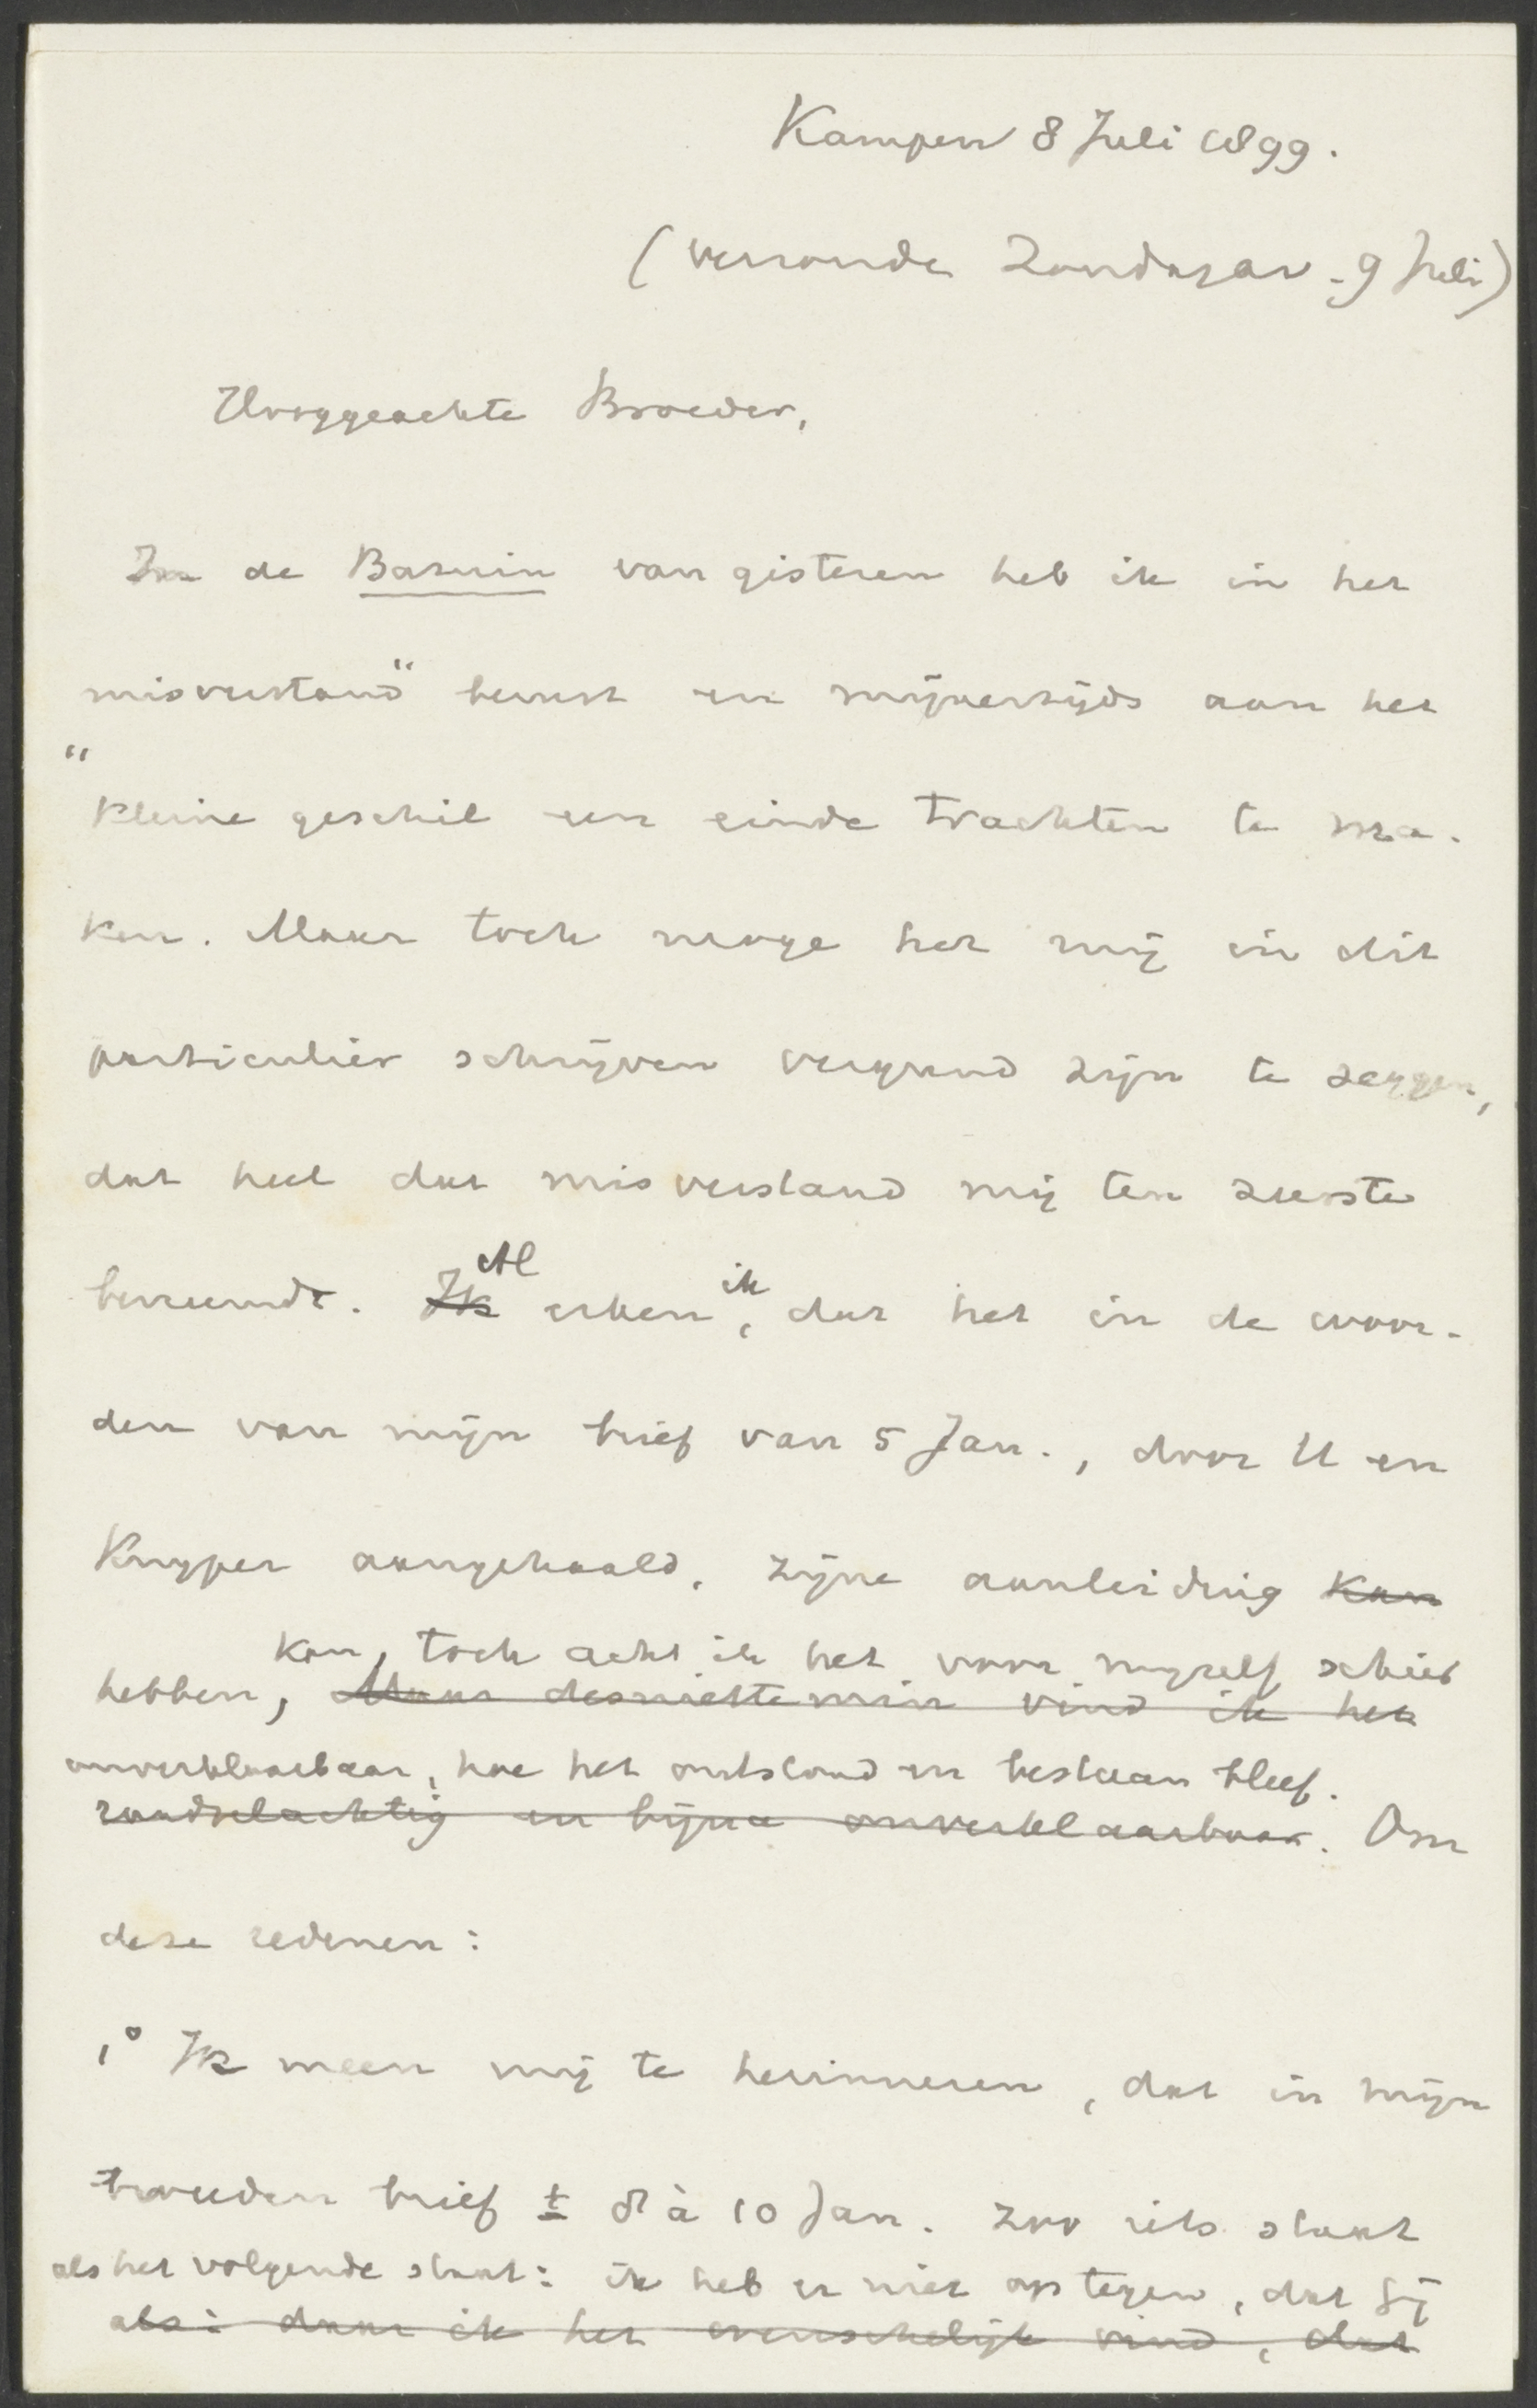 Kampen 8 Juli 1899.
(verzonden Zondagav. 9 Juli)
Hooggeachte Broeder,
In de Bazuin van gisteren heb ik in het
misverstand" berust en mijnerzijds aan het
"
kleine geschil een einde trachten te ma-
ken. Maar toch moge het mij in dit
particulier schrijven vergund zijn te zeggen,
dat heel dat misverstand mij ten zeerste
bevreemdt. Ik Al erken ik, dat het in de woor-
den van mijn brief van 5 Jan., door U en
Kuyper aangehaald, zijne aanleiding kan
kan, toch acht ik het voor mijzelf schier
hebben, Maar desniettemin vind ik het
onverklaarbaar, hoe het ontstond en bestaan bleef.
raadselachtig en bijna onverklaarbaar. Om
deze redenen:
1° Ik meen mij te herinneren, dat in mijn
tweeden brief ± 8 à 10 Jan. zoo iets staat
als het volgende staat: ik heb er niet op tegen, dat gij
als: daar ik het wenschelijk vind, dat